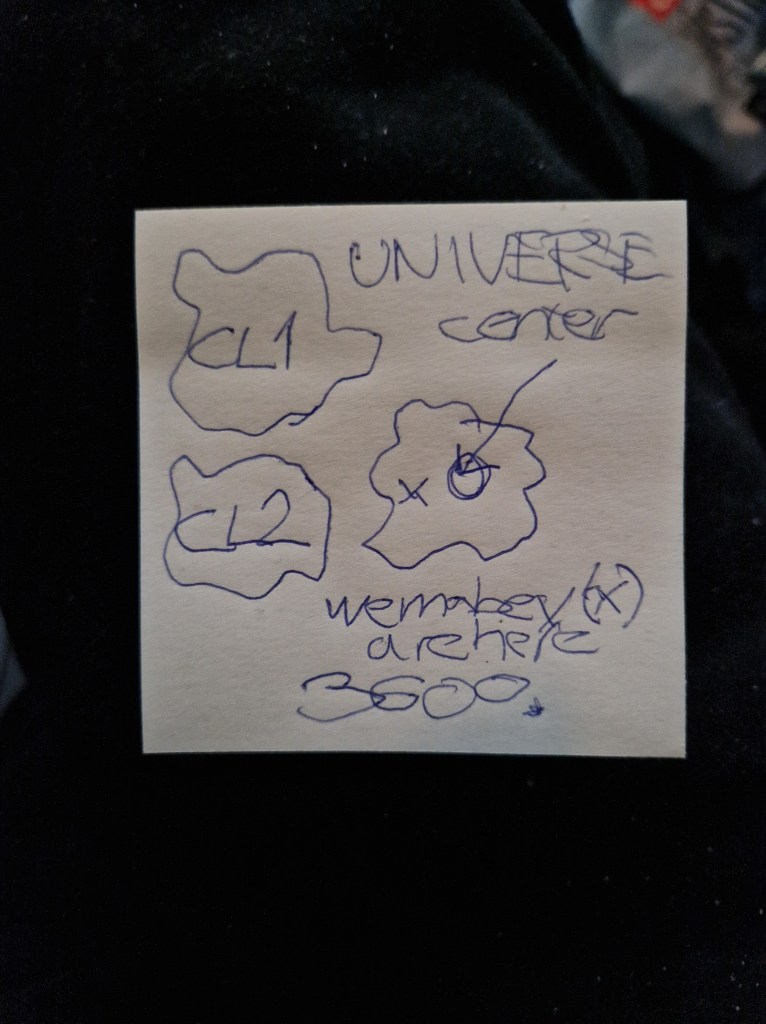 UNIVERSE
center
CL1
CL2
x
wemabey(x)
are here
3600.